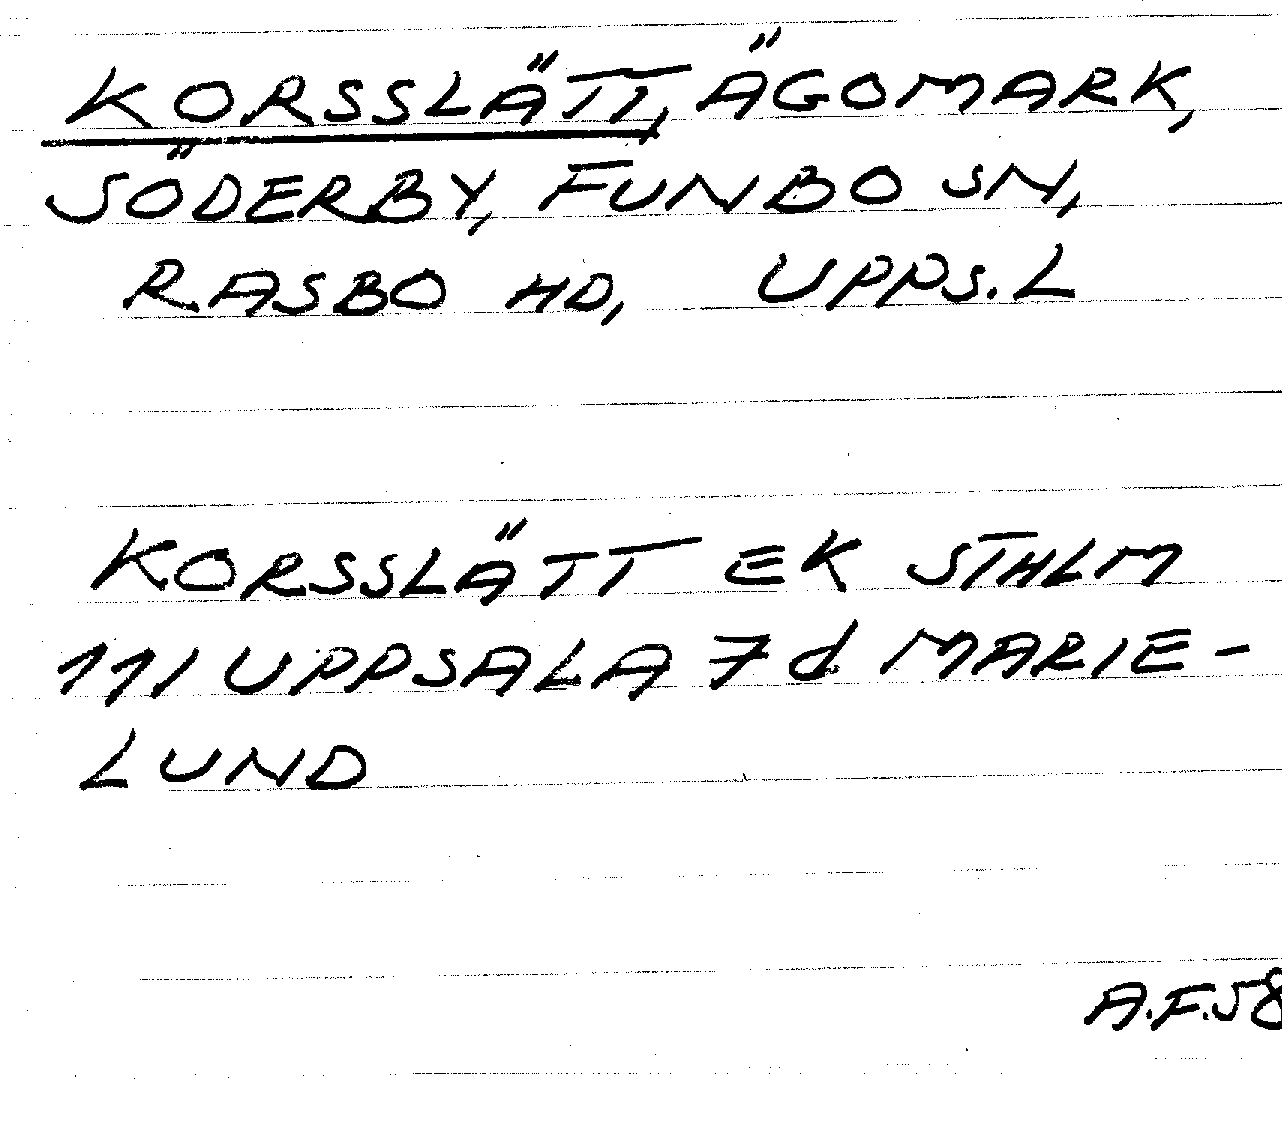 KORSSLÄTT, ÄGOMARK,
SÖDERBY, FUNBO SN,
RASBO HD, UPPS.L
KORSSLÄTT EK STHLM
11I UPPSALA 7d MARIE-
LUND
A.F.58